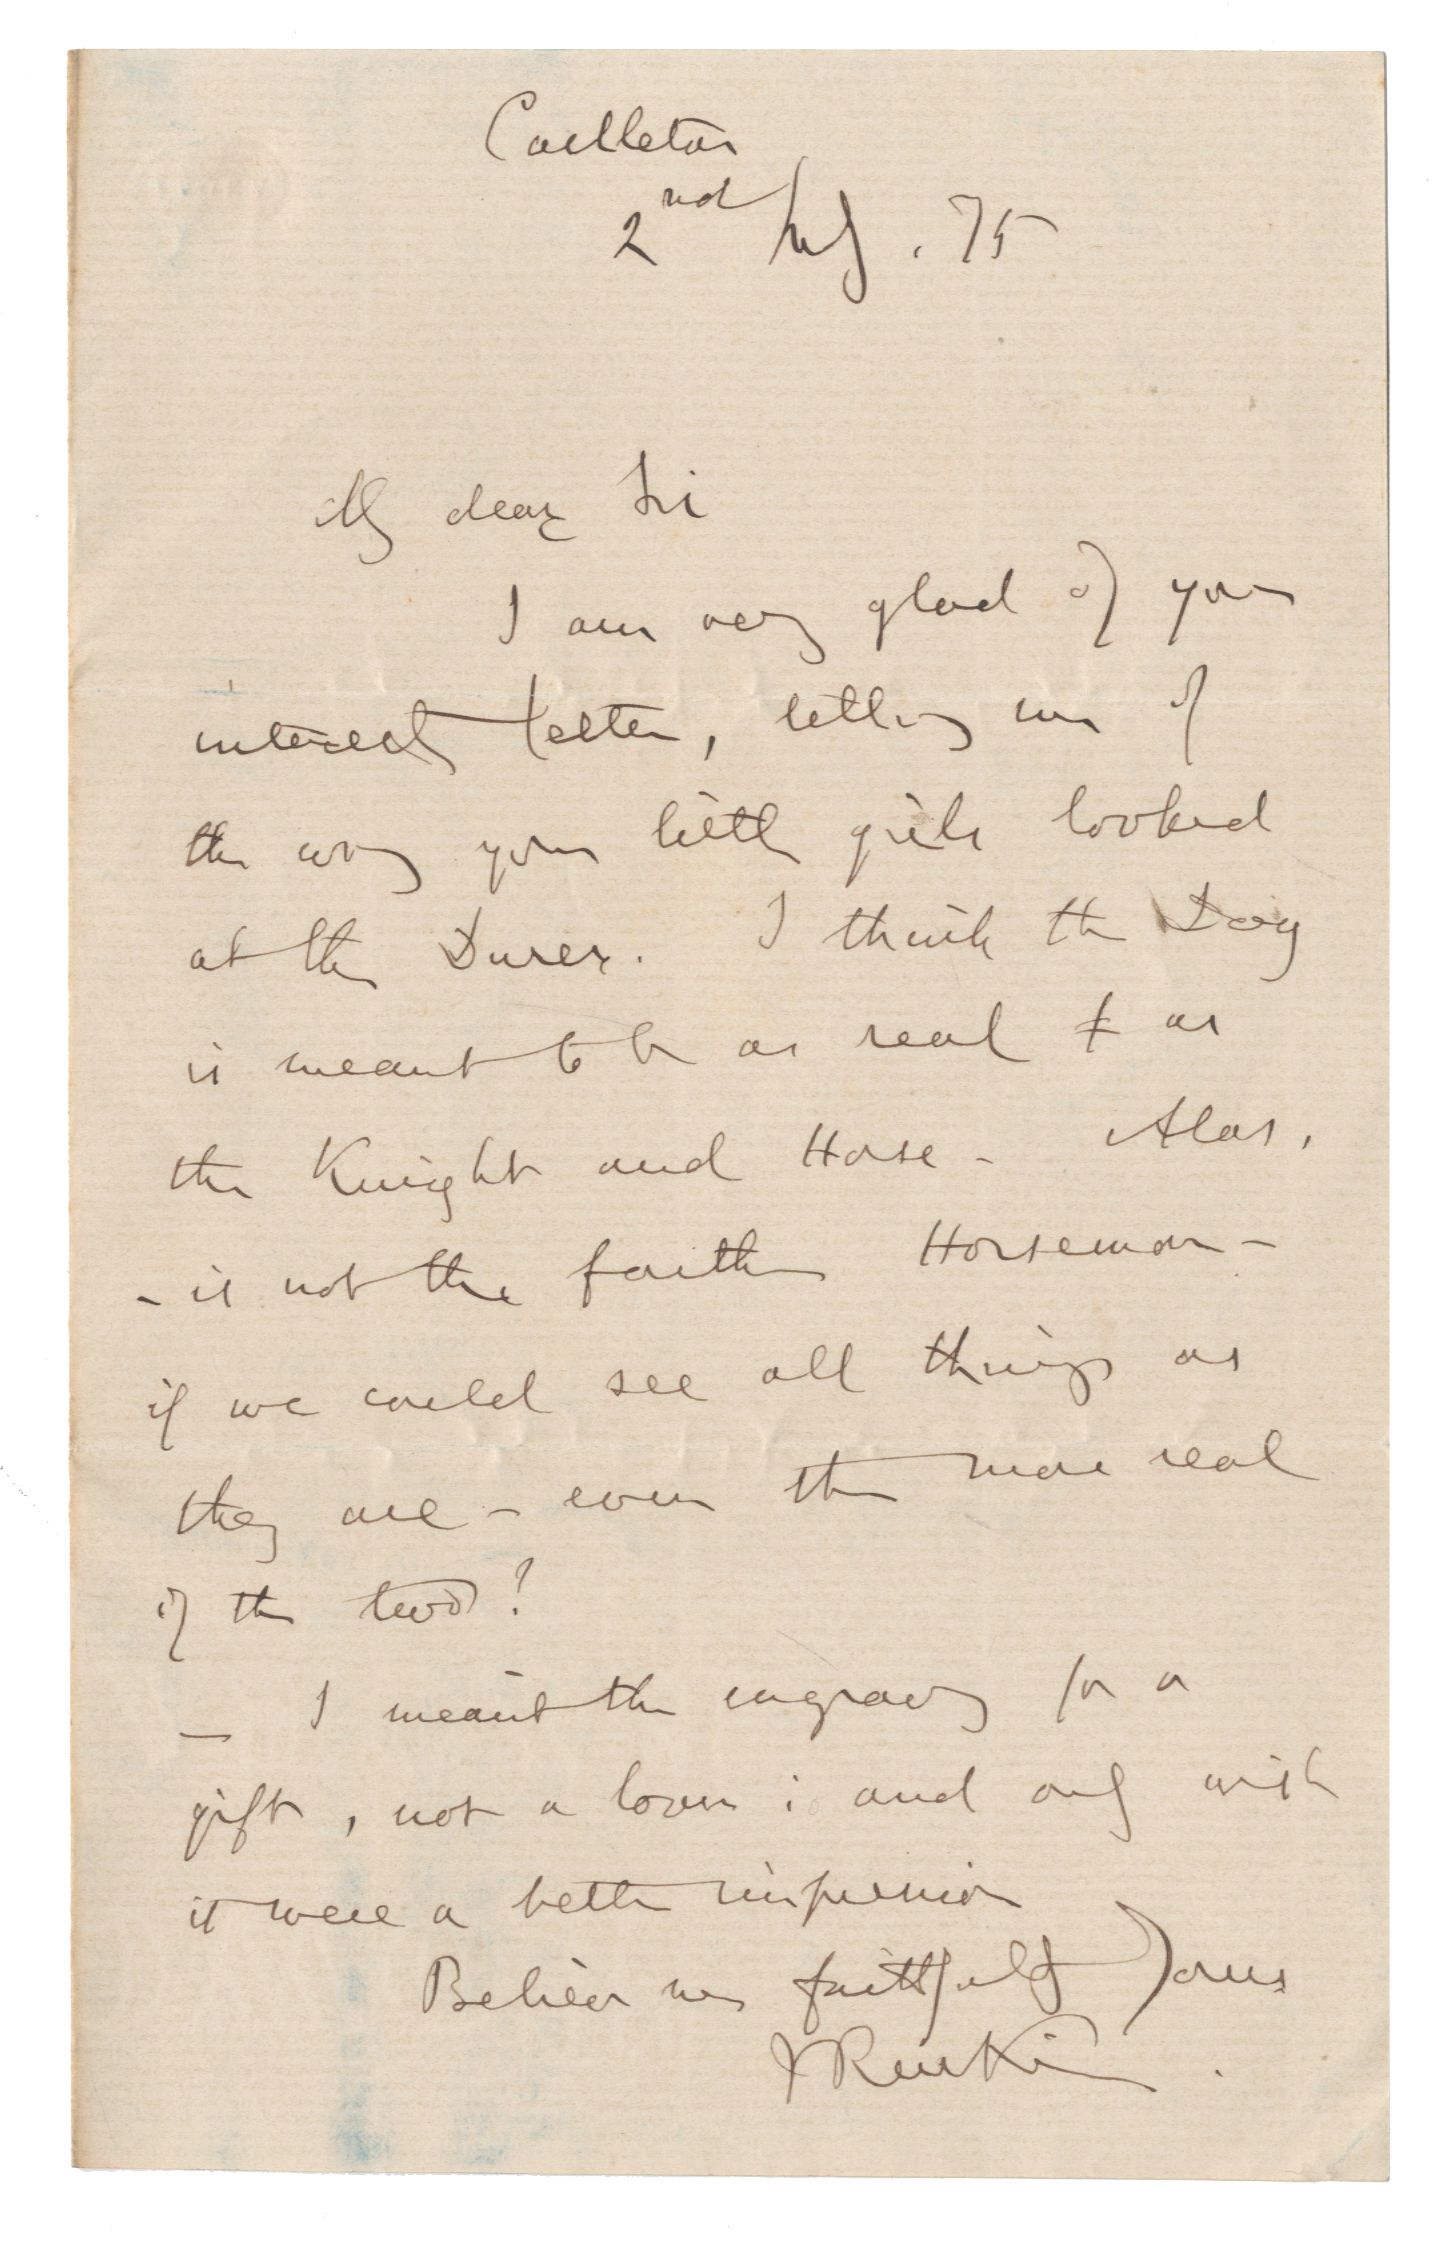 Castleton
2nd July. 75
My dear Sir
I am very glad of your
interesting letter, telling me of
the way your little girls looked
at the Durer. I think the Dog
is meant to be as real as
the Knight and Horse - Alas,
- is not the further Horseman -
if we could see all things as
they are - even the more real
of the two?
_ I meant the engraving for a
gift, not a loan; and only wish
it were a better impression
Believe me faithfully Yours
J Ruskin.